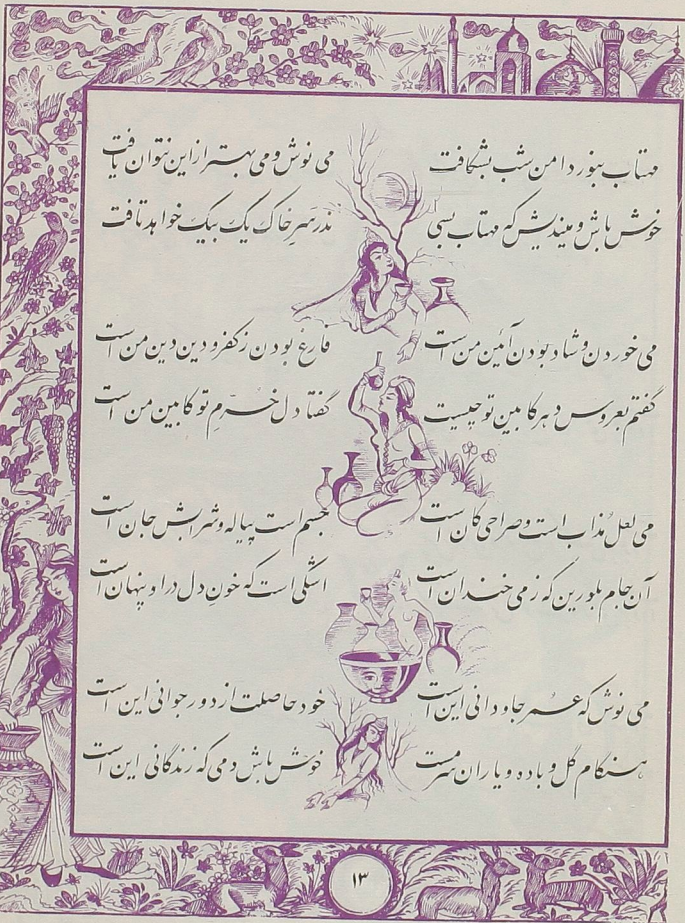 مهتاب بنور دامن شب بشکافت می نوش و می بهتر از این نتوان یافت
خوش باش و میندیش که مهتاب بسی اندر سر خاک یک بیک خواهد تافت
می خوردن و شاد بودن آئین من است فارغ بودن ز کفر و دین دین من است
گفتم بعروس دهر کابین تو چیست گفتا دل خرم تو کابین من است
می لعل مذاب است و صراحی کان است جسم است پیاله و شرابش جان است
آن جام بلورین که ز می خندان است اشکی است که خون دل در او پنهان است
می نوش که عمر جاودانی این است خود حاصلت از دور جوانی این است
هنگام گل و باده و یاران سرمست خوش باش دمی که زندگانی این است
۱۳